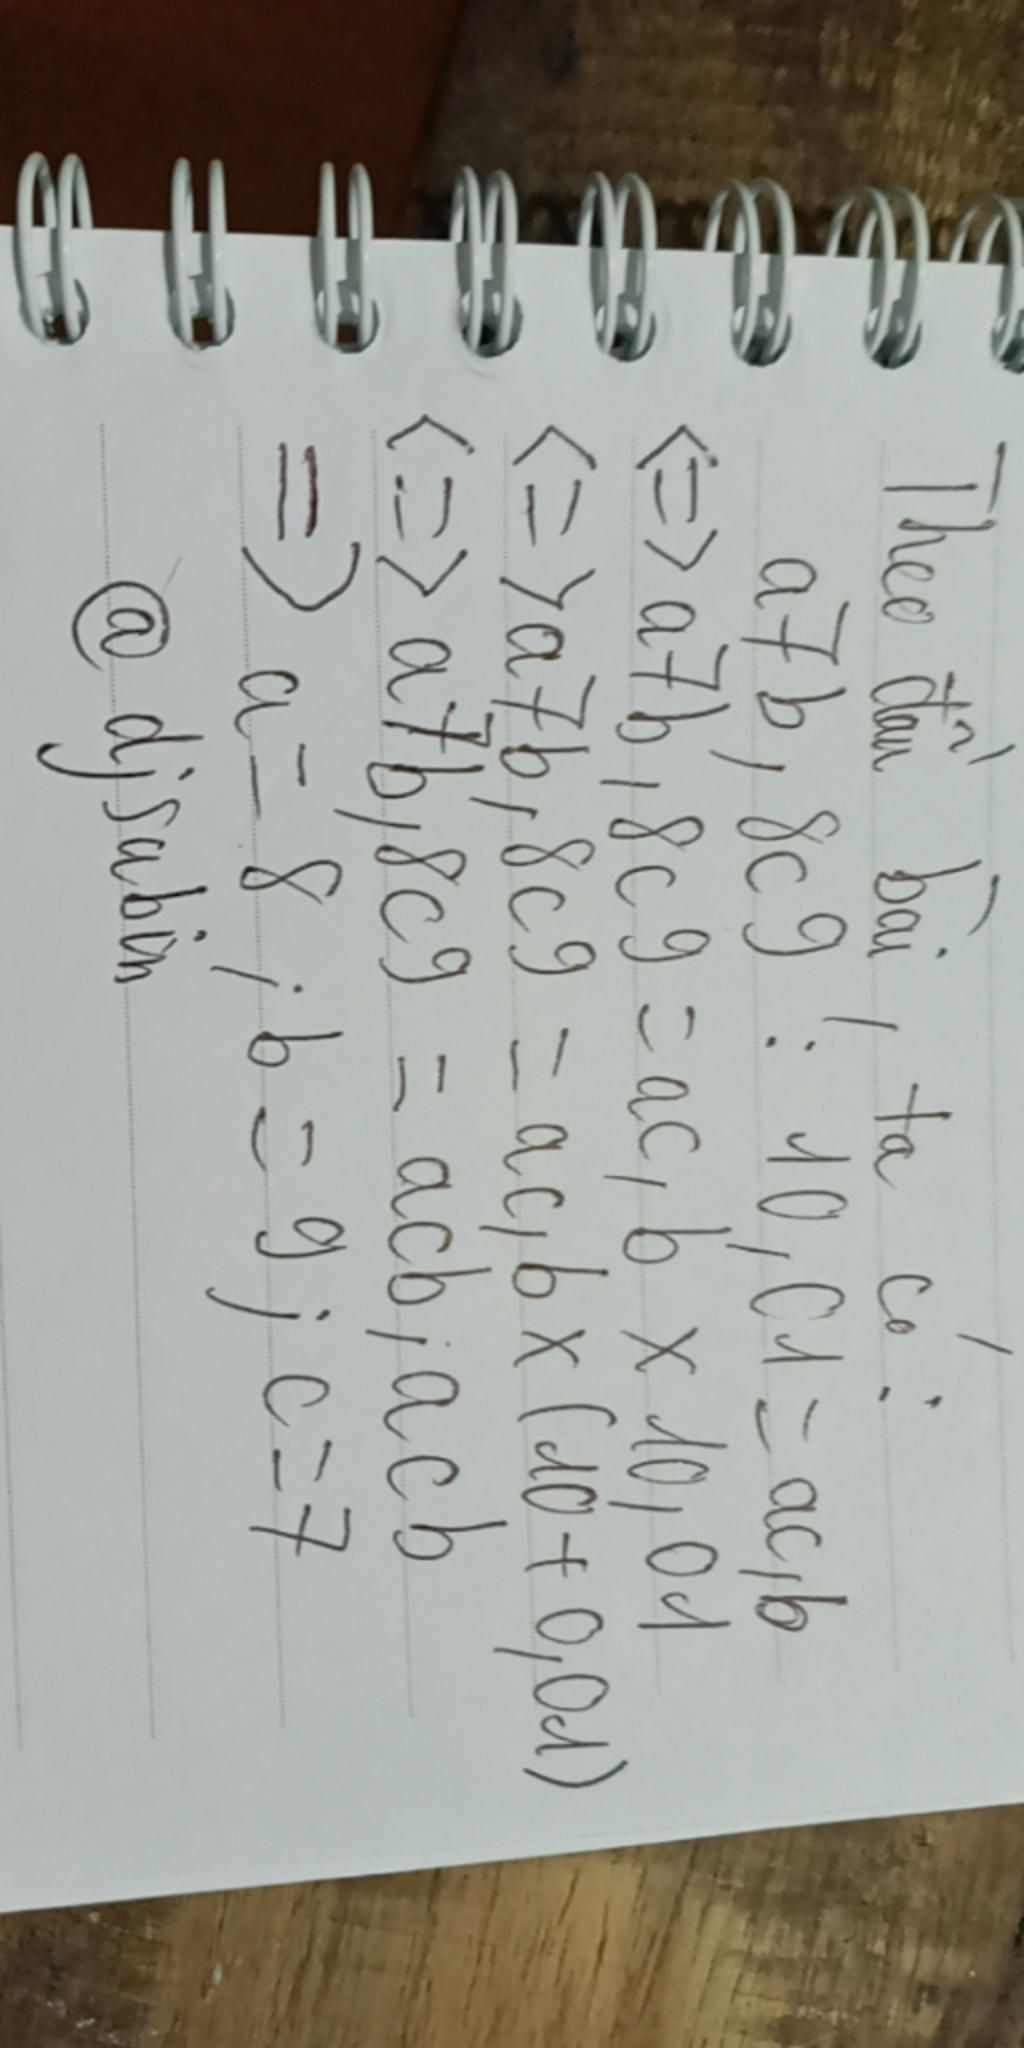 Theo đầu bài, ta có:
a7b,8c9 : 10,01 = ac,b
<=> a7b,8c9 = ac,b x 10,01
<=> a7b,8c9 = ac,b x (10 + 0,01)
<=> a7b,8c9 = acb,acb
=> a = 8; b = 9; c = 7
@djsabim